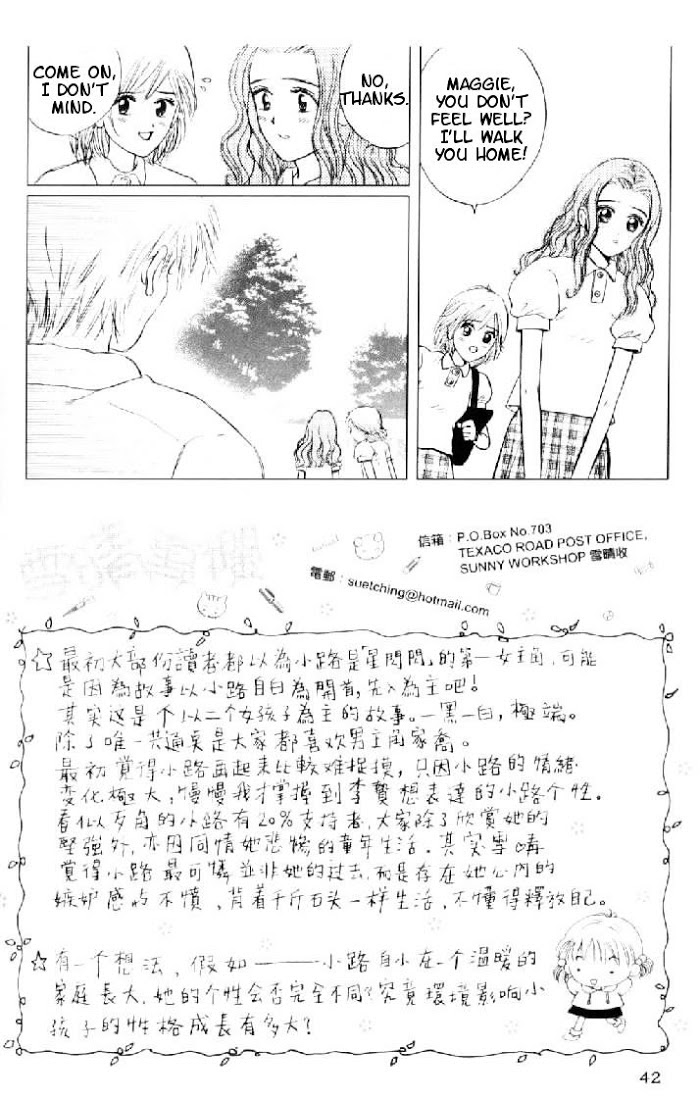 MAGGIE,
YOU DON'T
FEEL WELL?
I'LL WALK
YOU HOME!
NO,
THANKS.
COME ON,
I DON'T
MIND.
信箱：P.O.Box No.703
TEXACO ROAD POST OFFICE,
SUNNY WORKSHOP 雪晴收
電郵：suetching@hotmail.com
☆最初大部份讀者都以為小路是「星閃閃」的第一女主角,可能
是因為故事以小路自白為開首,先入為主吧！
其实这是个以二个女孩子為主的故事。一黑一白,極端。
除了唯一共通奌是大家都喜欢男主角家喬。
最初覚得小路画起来比較难捉摸,只因小路的情緒
变化極大,慢慢我才掌握到李賛想表達的小路个性。
看似歹角的小路有20%支持者,大家除了欣賞她的
堅強外,亦因同情她悲惨的童年生活。其实雪晴
覚得小路最可憐並非她的过去,而是存在她心內的
嫉妒感的不憤,背着千斤石头一样生活,不懂得釋放自己。
☆有一个想法,假如———小路自小在一个温暖的
家庭長大,她的个性会否完全不同?究竟環境影响小
孩子的性格成長有多大?
42